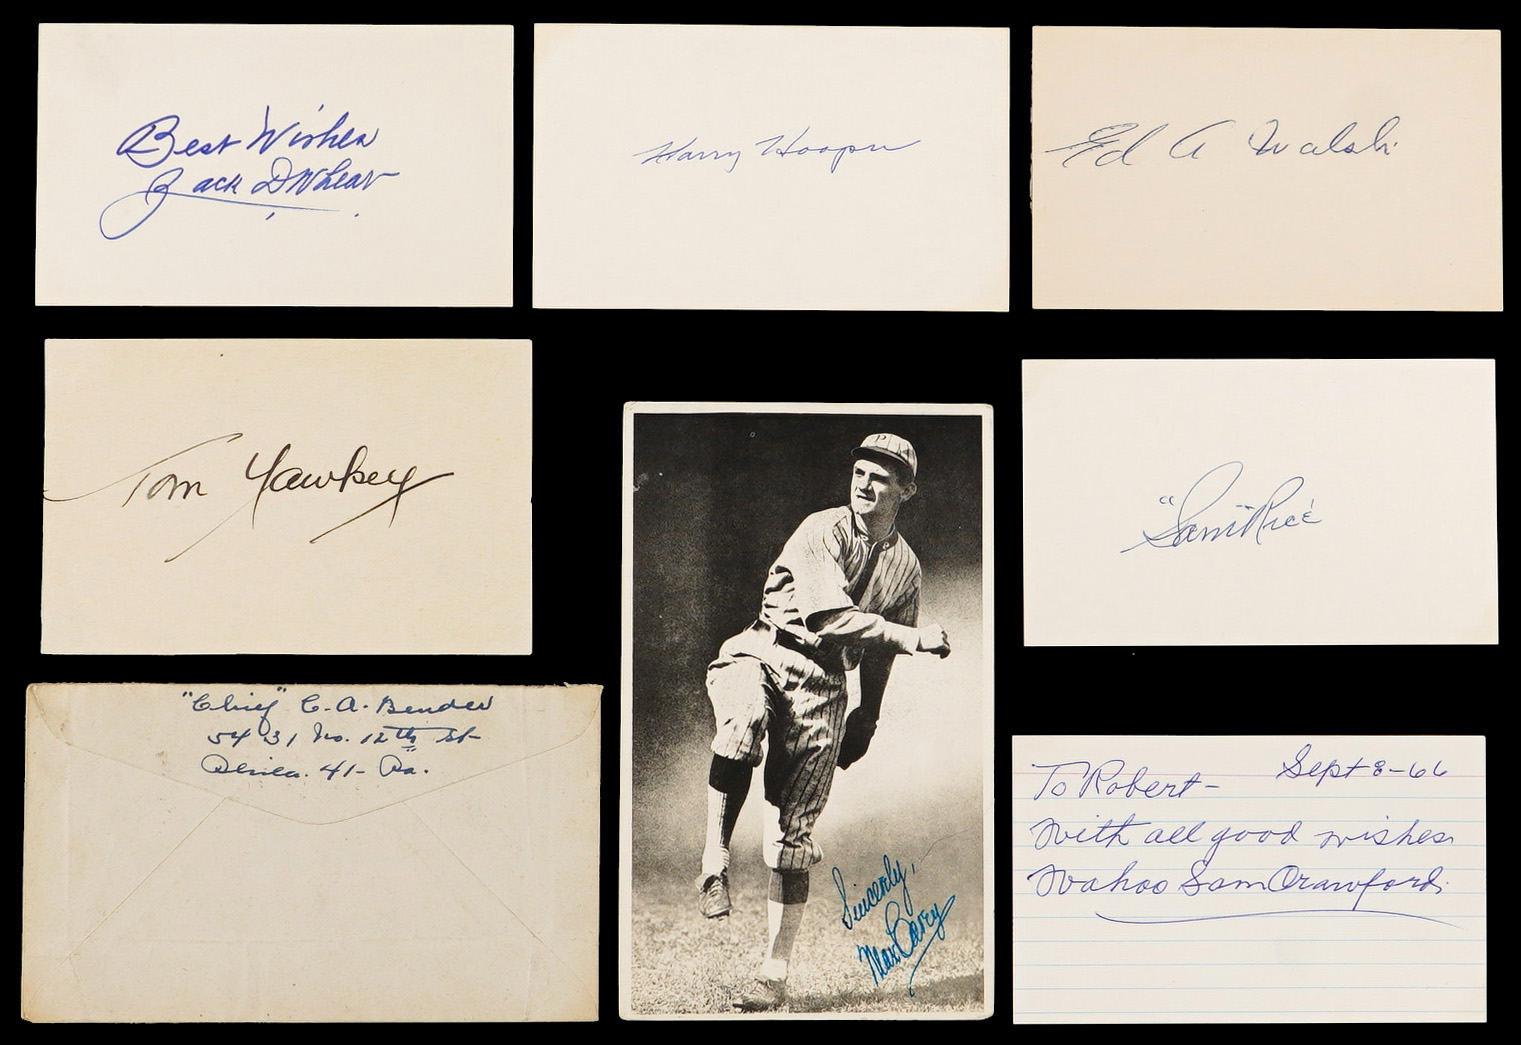 Best Wishes
Zack D Wheat
Harry Hooper
Ed A Walsh
Tom Yawkey
"Sam" Rice
"Chief" C. A. Bender
5431 No. 12th St
Phila. 41- Pa.
P
Sincerely,
Max Carey
Sept 8-66
To Robert-
With all good wishes
Wahoo Sam Crawford.